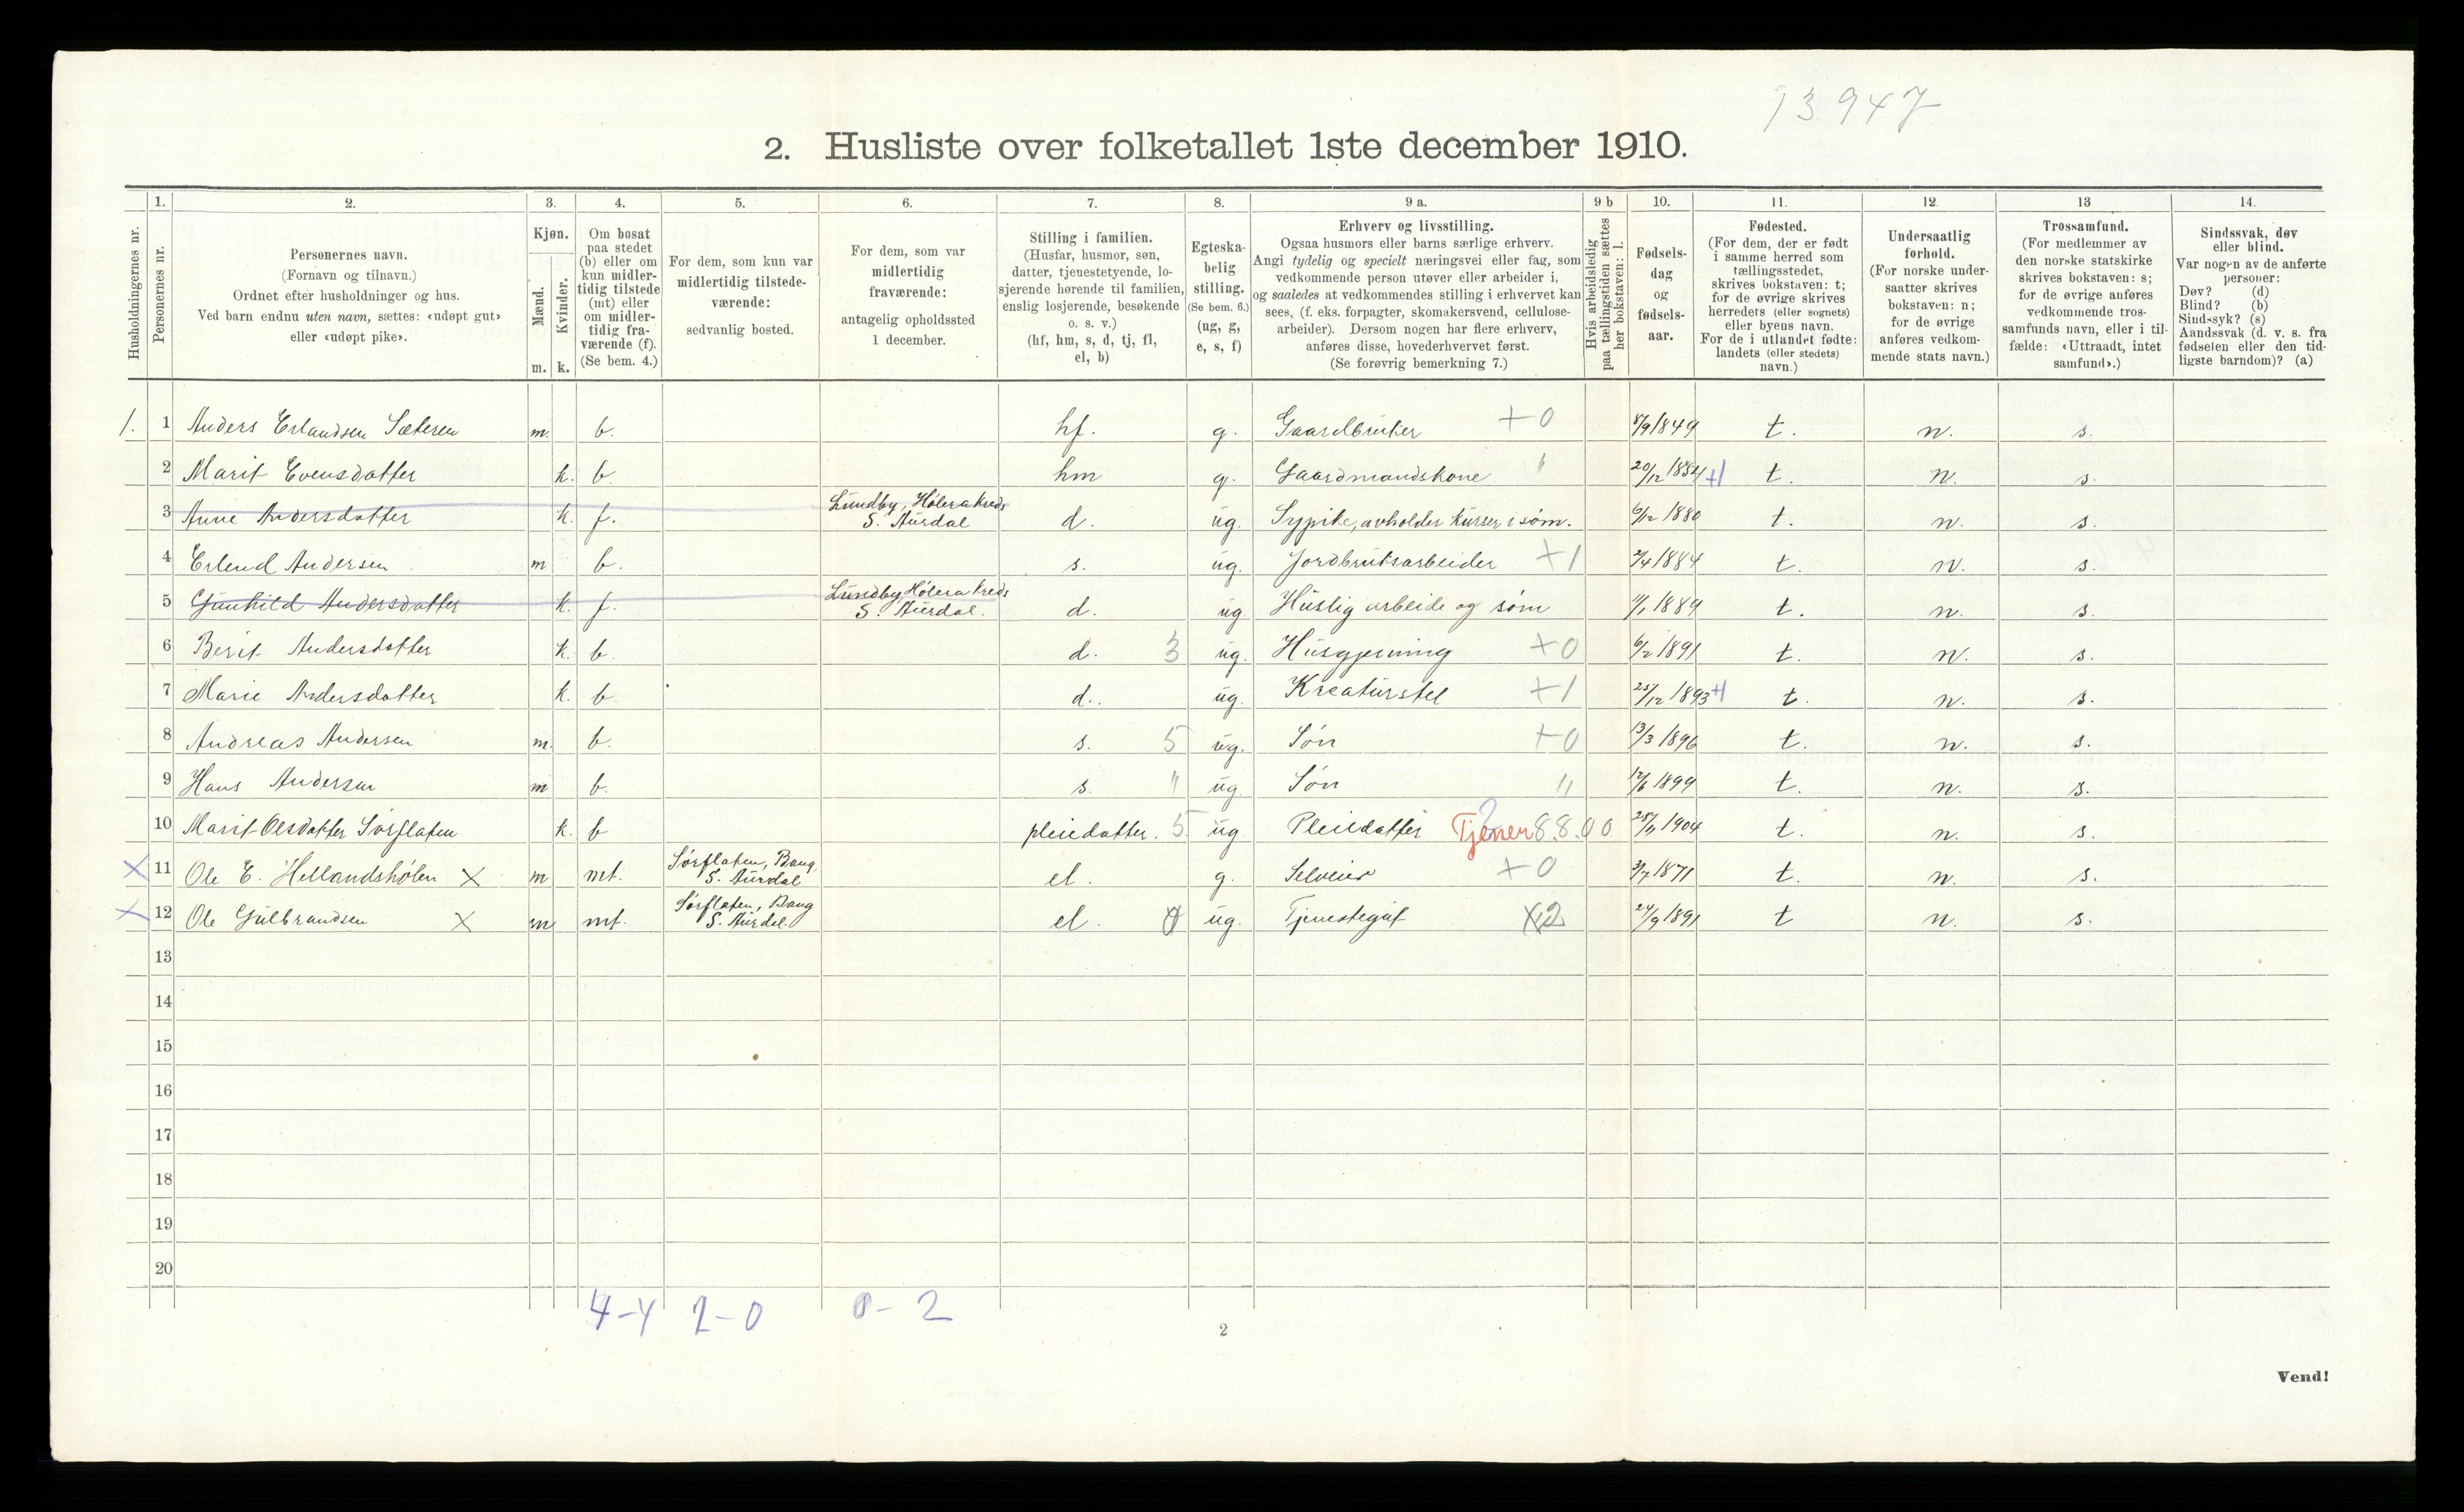 13947
2. Husliste over folketallet 1ste december 1910.
Husholdningernes nr.
1. Personernes nr.
2. Personernes navn.
(Fornavn og tilnavn.)
Ordnet efter husholdninger og hus.
Ved barn endnu uten navn, sættes: «udøpt gut»
eller «udøpt pike».
3. Kjøn.
Mænd. m.
Kvinder. k.
4. Om bosat
paa stedet
(b) eller om
kun midler-
tidig tilstede
(mt) eller
om midler-
tidig fra-
værende (f).
(Se bem. 4.)
5. For dem, som kun var
midlertidig tilstede-
værende:
sedvanlig bosted.
6. For dem, som var
midlertidig
fraværende:
antagelig opholdssted
1 december.
7. Stilling i familien.
(Husfar, husmor, søn,
datter, tjenestetyende, lo-
sjerende hørende til familien,
enslig losjerende, besøkende
o. s. v.)
(hf, hm, s, d, tj, fl,
el, b)
8. Egteska-
belig
stilling.
(Se bem. 6.)
(ug, g,
e, s, f)
9 a. Erhverv og livsstilling.
Ogsaa husmors eller barns særlige erhverv.
Angi tydelig og specielt næringsvei eller fag, som
vedkommende person utøver eller arbeider i,
og saaledes at vedkommendes stilling i erhvervet kan
sees, (f. eks. forpagter, skomakersvend, cellulose-
arbeider). Dersom nogen har flere erhverv,
anføres disse, hovederhvervet først.
(Se forøvrig bemerkning 7.)
9 b Hvis arbeidsledig
paa tællingstiden sættes
her bokstaven: l.
10. Fødsels-
dag
og
fødsels-
aar.
11. Fødested.
(For dem, der er født
i samme herred som
tællingsstedet,
skrives bokstaven: t;
for de øvrige skrives
herredets (eller sognets)
eller byens navn.
For de i utlandet fødte:
landets (eller stedets)
navn.)
12. Undersaatlig
forhold.
(For norske under-
saatter skrives
bokstaven: n;
for de øvrige
anføres vedkom-
mende stats navn.)
13 Trossamfund.
(For medlemmer av
den norske statskirke
skrives bokstaven: s;
for de øvrige anføres
vedkommende tros-
samfunds navn, eller i til-
fælde: «Uttraadt, intet
samfund».)
14. Sindssvak, døv
eller blind.
Var nogen av de anførte
personer:
Døv? (d)
Blind? (b)
Sindssyk? (s)
Aandssvak (d. v. s. fra
fødselen eller den tid-
ligste barndom)? (a)
1. 1 Anders Erlandsen Sæteren m. b. hf. g. Gaardbruker +0 8/9 1849 t. n. s.
2 Marit Evensdatter k. b. hm g. Gaardmandskone " 20/12 1854 +1 t. n. s.
3 Anne Andersdatter k. f. Lundby, Hølera kreds S. Aurdal d. ug. Sypike, avholder kurser i søm. 6/12 1880 t. n. s.
4 Erlend Andersen m b. s. ug. Jordbruksarbeider +1 2/4 1884 t. n. s.
5 Gunhild Andersdatter k. f. Lundby, Hølera kreds S. Aurdal. d. ug. Huslig arbeide og søm 11/1 1889 t. n. s.
6 Berit Andersdatter k. b. d. 3 ug. Husgjerning +0 6/2 1891 t. n. s.
7 Marie Andersdatter k. b. d. ug. Kreaturstel +1 25/12 1893 +1 t. n. s.
8 Andreas Andersen m. b. s. 5 ug. Søn +0 13/3 1896 t. n. s.
9 Hans Andersen m b. s. " ug. Søn " 12/6 1899 t. n. s.
10 Marit Olsdatter Sørflaten k. b pleiedatter. 5 ug Pleiedatter Tjener 8.8.00 1904 t. n. s.
X 11 Ole E. Hellandshølen X m mt. Sørflaten, Bang, S. Aurdal el. g. Selveier +0 3/7 1871 t. n. s.
X 12 Ole Gulbrandsen X m mt. Sørflaten, Bang S. Aurdal. el. 0 ug. Tjenestegut X2 24/9 1891 t n. s.
13
14
15
16
17
18
19
20
4-4 2-0 0-2
2
Vend!